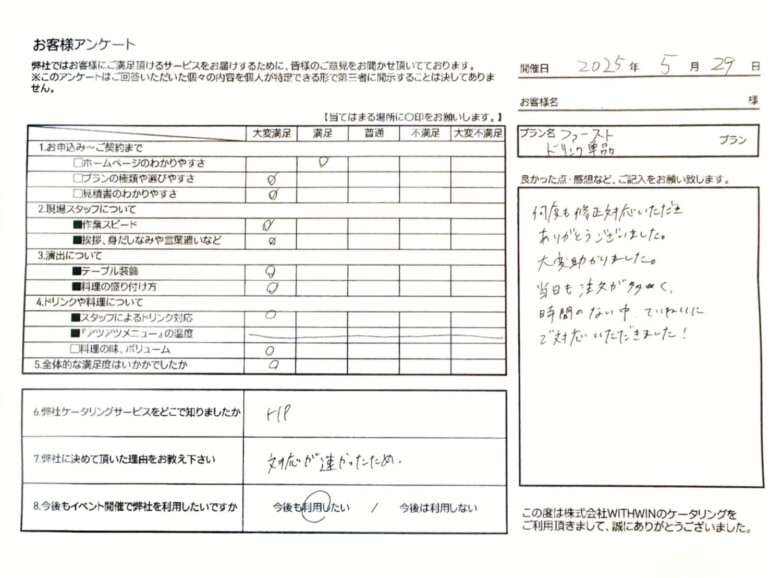 お客様アンケート
弊社ではお客様にご満足頂けるサービスをお届けするために、皆様のご意見をお聞かせ頂いております。
※このアンケートはご回答いただいた個々の内容を個人が特定できる形で第三者に開示することは決してありま
せん。
【当てはまる場所に〇印をお願いします。】
大変満足 満足 普通 不満足 大変不満足
1.お申込み～ご契約まで
□ホームページのわかりやすさ 〇
□プランの種類や選びやすさ 〇
□見積書のわかりやすさ 〇
2.現場スタッフについて
■作業スピード 〇
■挨拶、身だしなみや言葉遣いなど 〇
3.演出について
■テーブル装飾 〇
■料理の盛り付け方 〇
4.ドリンクや料理について
■スタッフによるドリンク対応 〇
■『アツアツメニュー』の温度
□料理の味、ボリューム 〇
5.全体的な満足度はいかがでしたか 〇
6.弊社ケータリングサービスをどこで知りましたか HP
7.弊社に決めて頂いた理由をお教え下さい 対応が速かったため.
8.今後もイベント開催で弊社を利用したいですか 今後も利用したい / 今後は利用しない
開催日 2025 年 5 月 29 日
お客様名 様
プラン名 ファースト プラン
ドリンク単品
良かった点・感想など、ご記入をお願い致します。
何度も修正対応いただき
ありがとうございました。
大変助かりました。
当日も注文が多く、
時間のない中、ていねいに
ご対応いただきました!
この度は株式会社WITHWINのケータリングを
ご利用頂きまして、誠にありがとうございました。